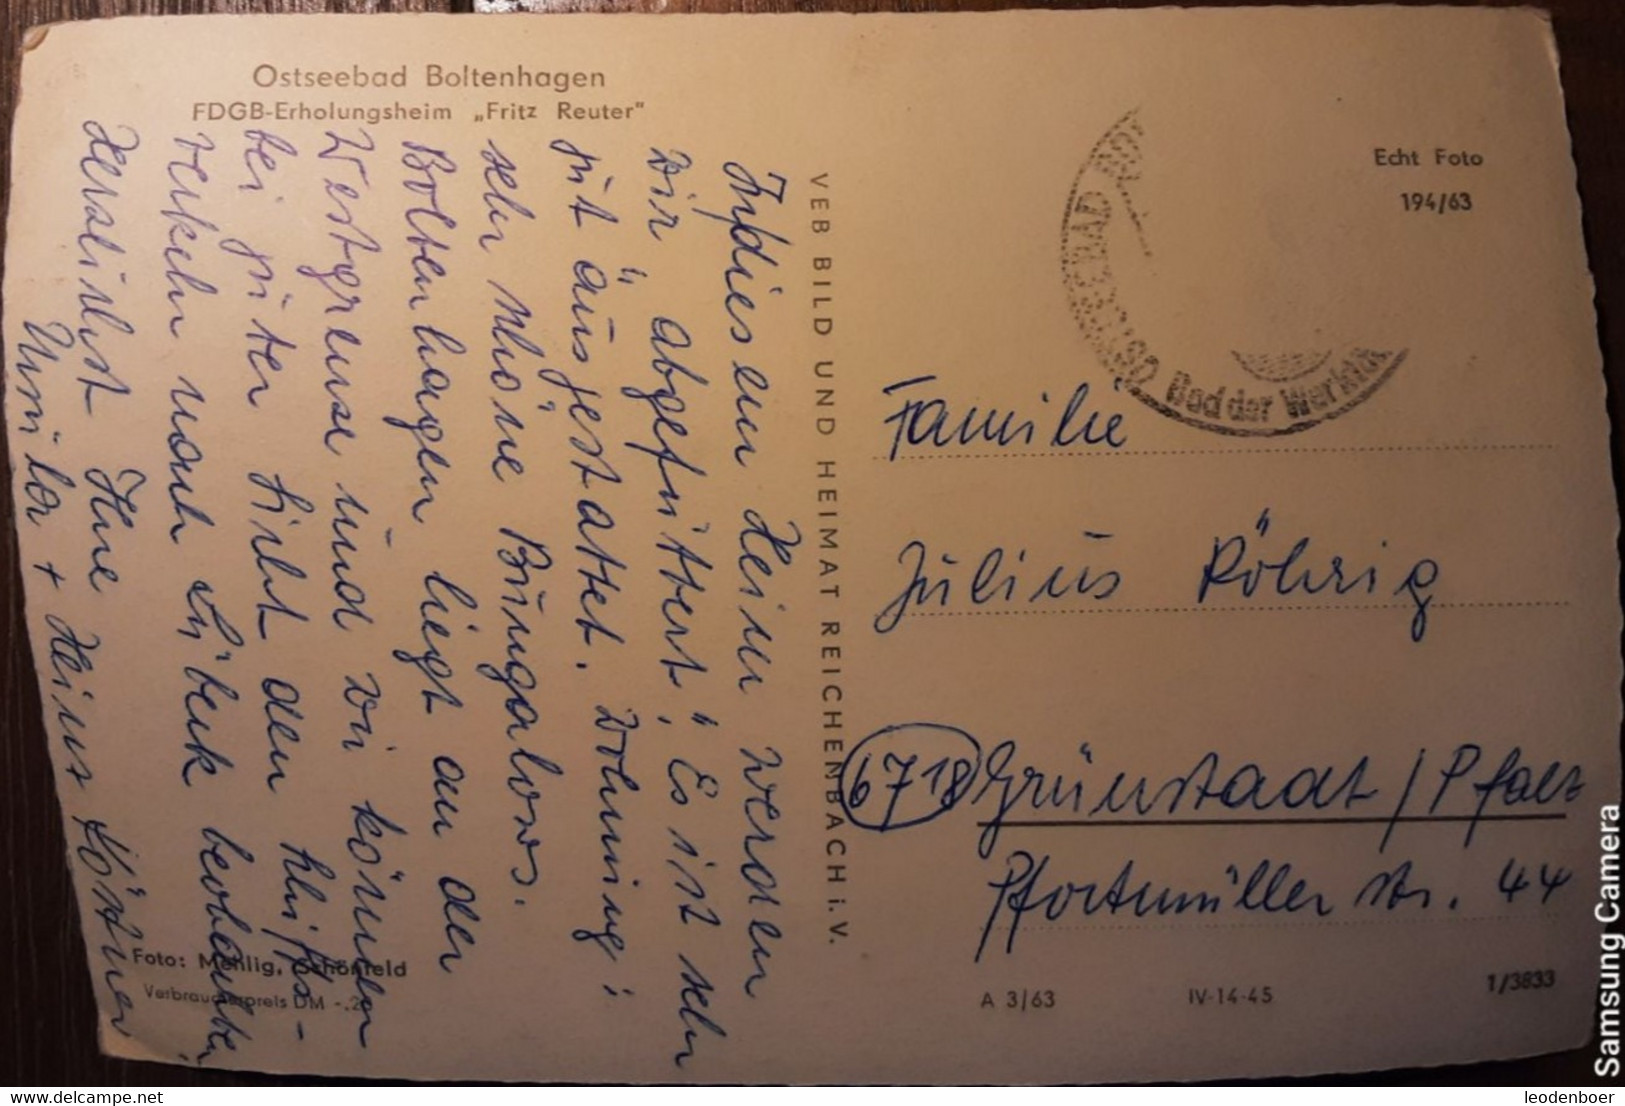 Ostseebad Boltenhagen
FDGB-Erholungsheim „Fritz Reuter"
In diesem Heim werden
wir „abgefüttert". Es ist sehr
gut ausgestattet. Wohnung:
sehr schöne Bungalows.
Boltenhagen liegt an der
Westgrenze und wir können
bei guter Sicht den Schiffs-
verkehr nach Lübeck beobachten.
Herzlichst Ihre
+ Heinz Köstner
VEB BILD UND HEIMAT REICHENBACH i. V.
Foto: Mehlig, Schönfeld
Verbraucherpreis DM -.2
Echt Foto
194/63
OSTSEEBAD BO
Bad der Werktä
Familie
Julius Röhrig
6718 Grünstadt / Pfalz
Pfortmüller str. 44
A 3/63
IV-14-45
1/3833
Samsung Camera
delcampe.net
leodenboer